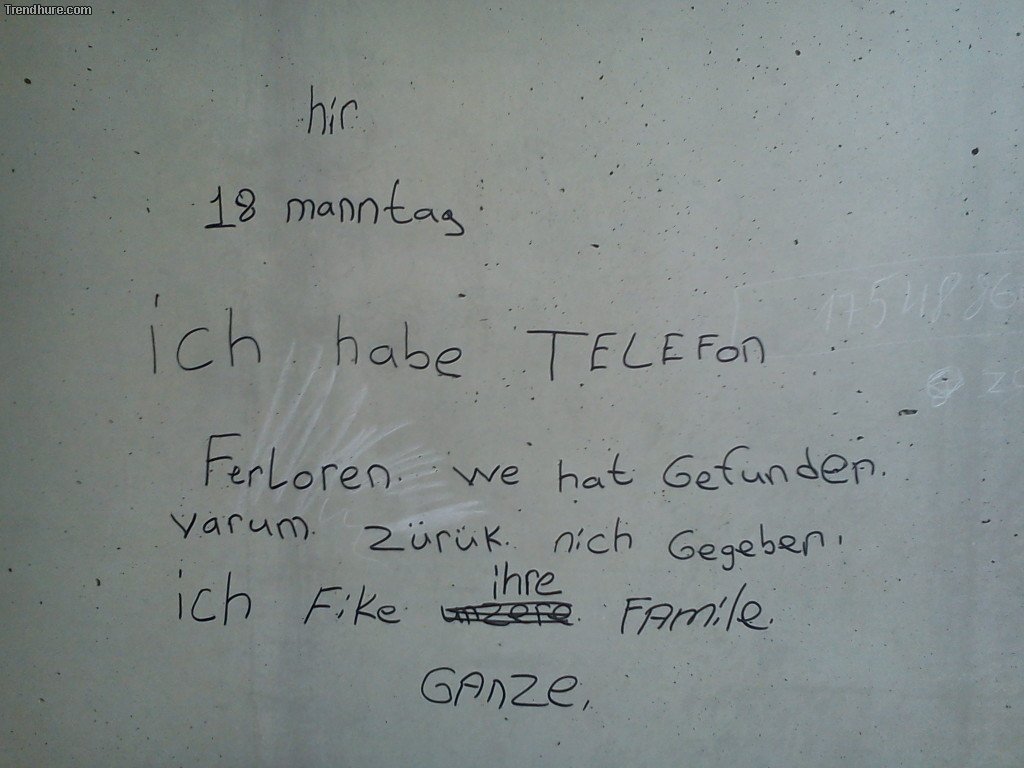 Trendhure.com
hir
18 manntag
ich habe TELEFon
FerLoren. we hat Gefunden.
varum. zürük. nich Gegeben.
ihre
ich Fike unzere. FAmile.
GAnze.